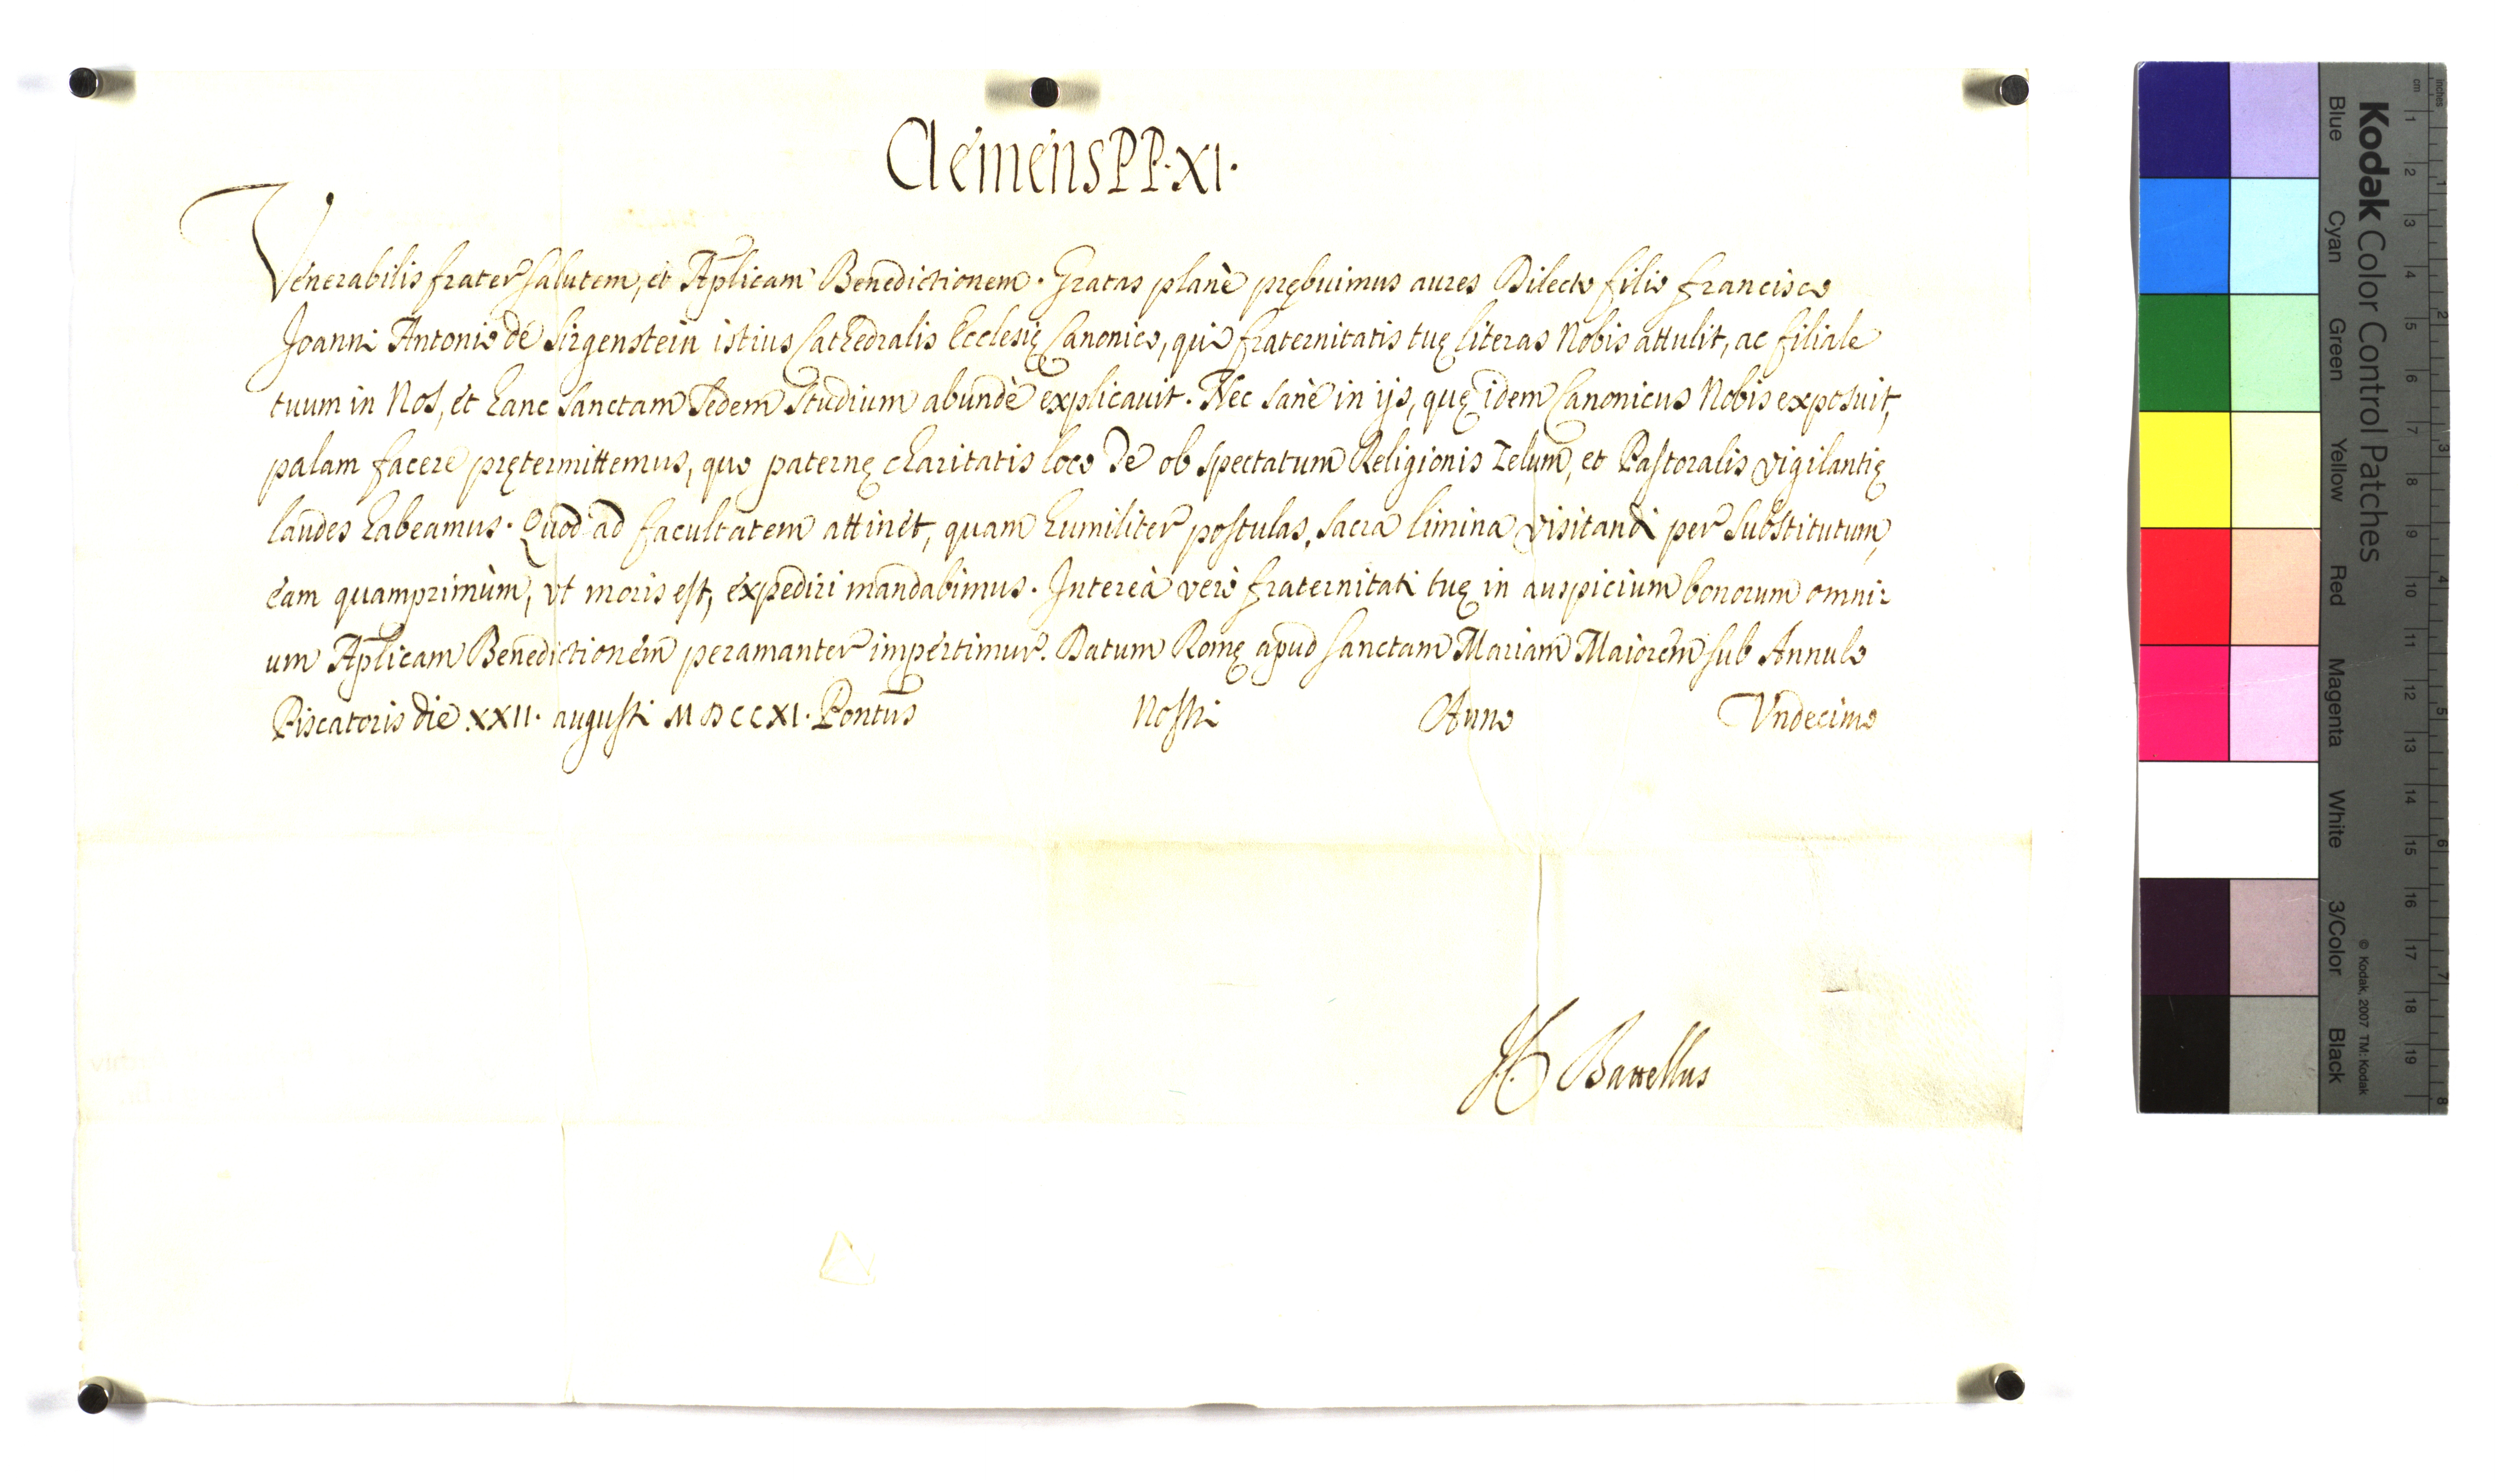 Clemens PP. XI.
Venerabilis frater salutem, et Aplicam Benedictionem. Gratas planè prębuimus aures Dilecto filio francisco
Joanni Antonio de Sirgenstein istius Cathedralis Ecclesię Canonico, qui fraternitatis tuę literas Nobis attulit, ac filiale
tuum in Nos, et hanc sanctam sedem studium abundè explicauit. Nec sanè in ijs, quę idem Canonicus Nobis exposuit,
palam facere prętermittemus, quo paternę charitatis loco Te ob spectatum Religionis zelum, et Pastoralis vigilantię
laudes habeamus. Quod ad facultatem attinet, quam humiliter postulas, sacra limina visitandi per substitutum,
eam quamprimùm, vt moris est, expediri mandabimus. Intereà verò fraternitati tuę in auspicium bonorum omni-
um Aplicam Benedictionem peramanter impertimur. Datum Romę apud sanctam Mariam Maiorem sub Annulo
Piscatoris die XXII. augusti MDCCXI. Pontus Nostri Anno Vndecimo
Battellus
Kodak Color Control Patches
Blue Cyan Green Yellow Red Magenta White 3/Color Black
© Kodak, 2007 TM: Kodak
cm 1 2 3 4 5 6 7 8 9 10 11 12 13 14 15 16 17 18 19
inches 1 2 3 4 5 6 7 8